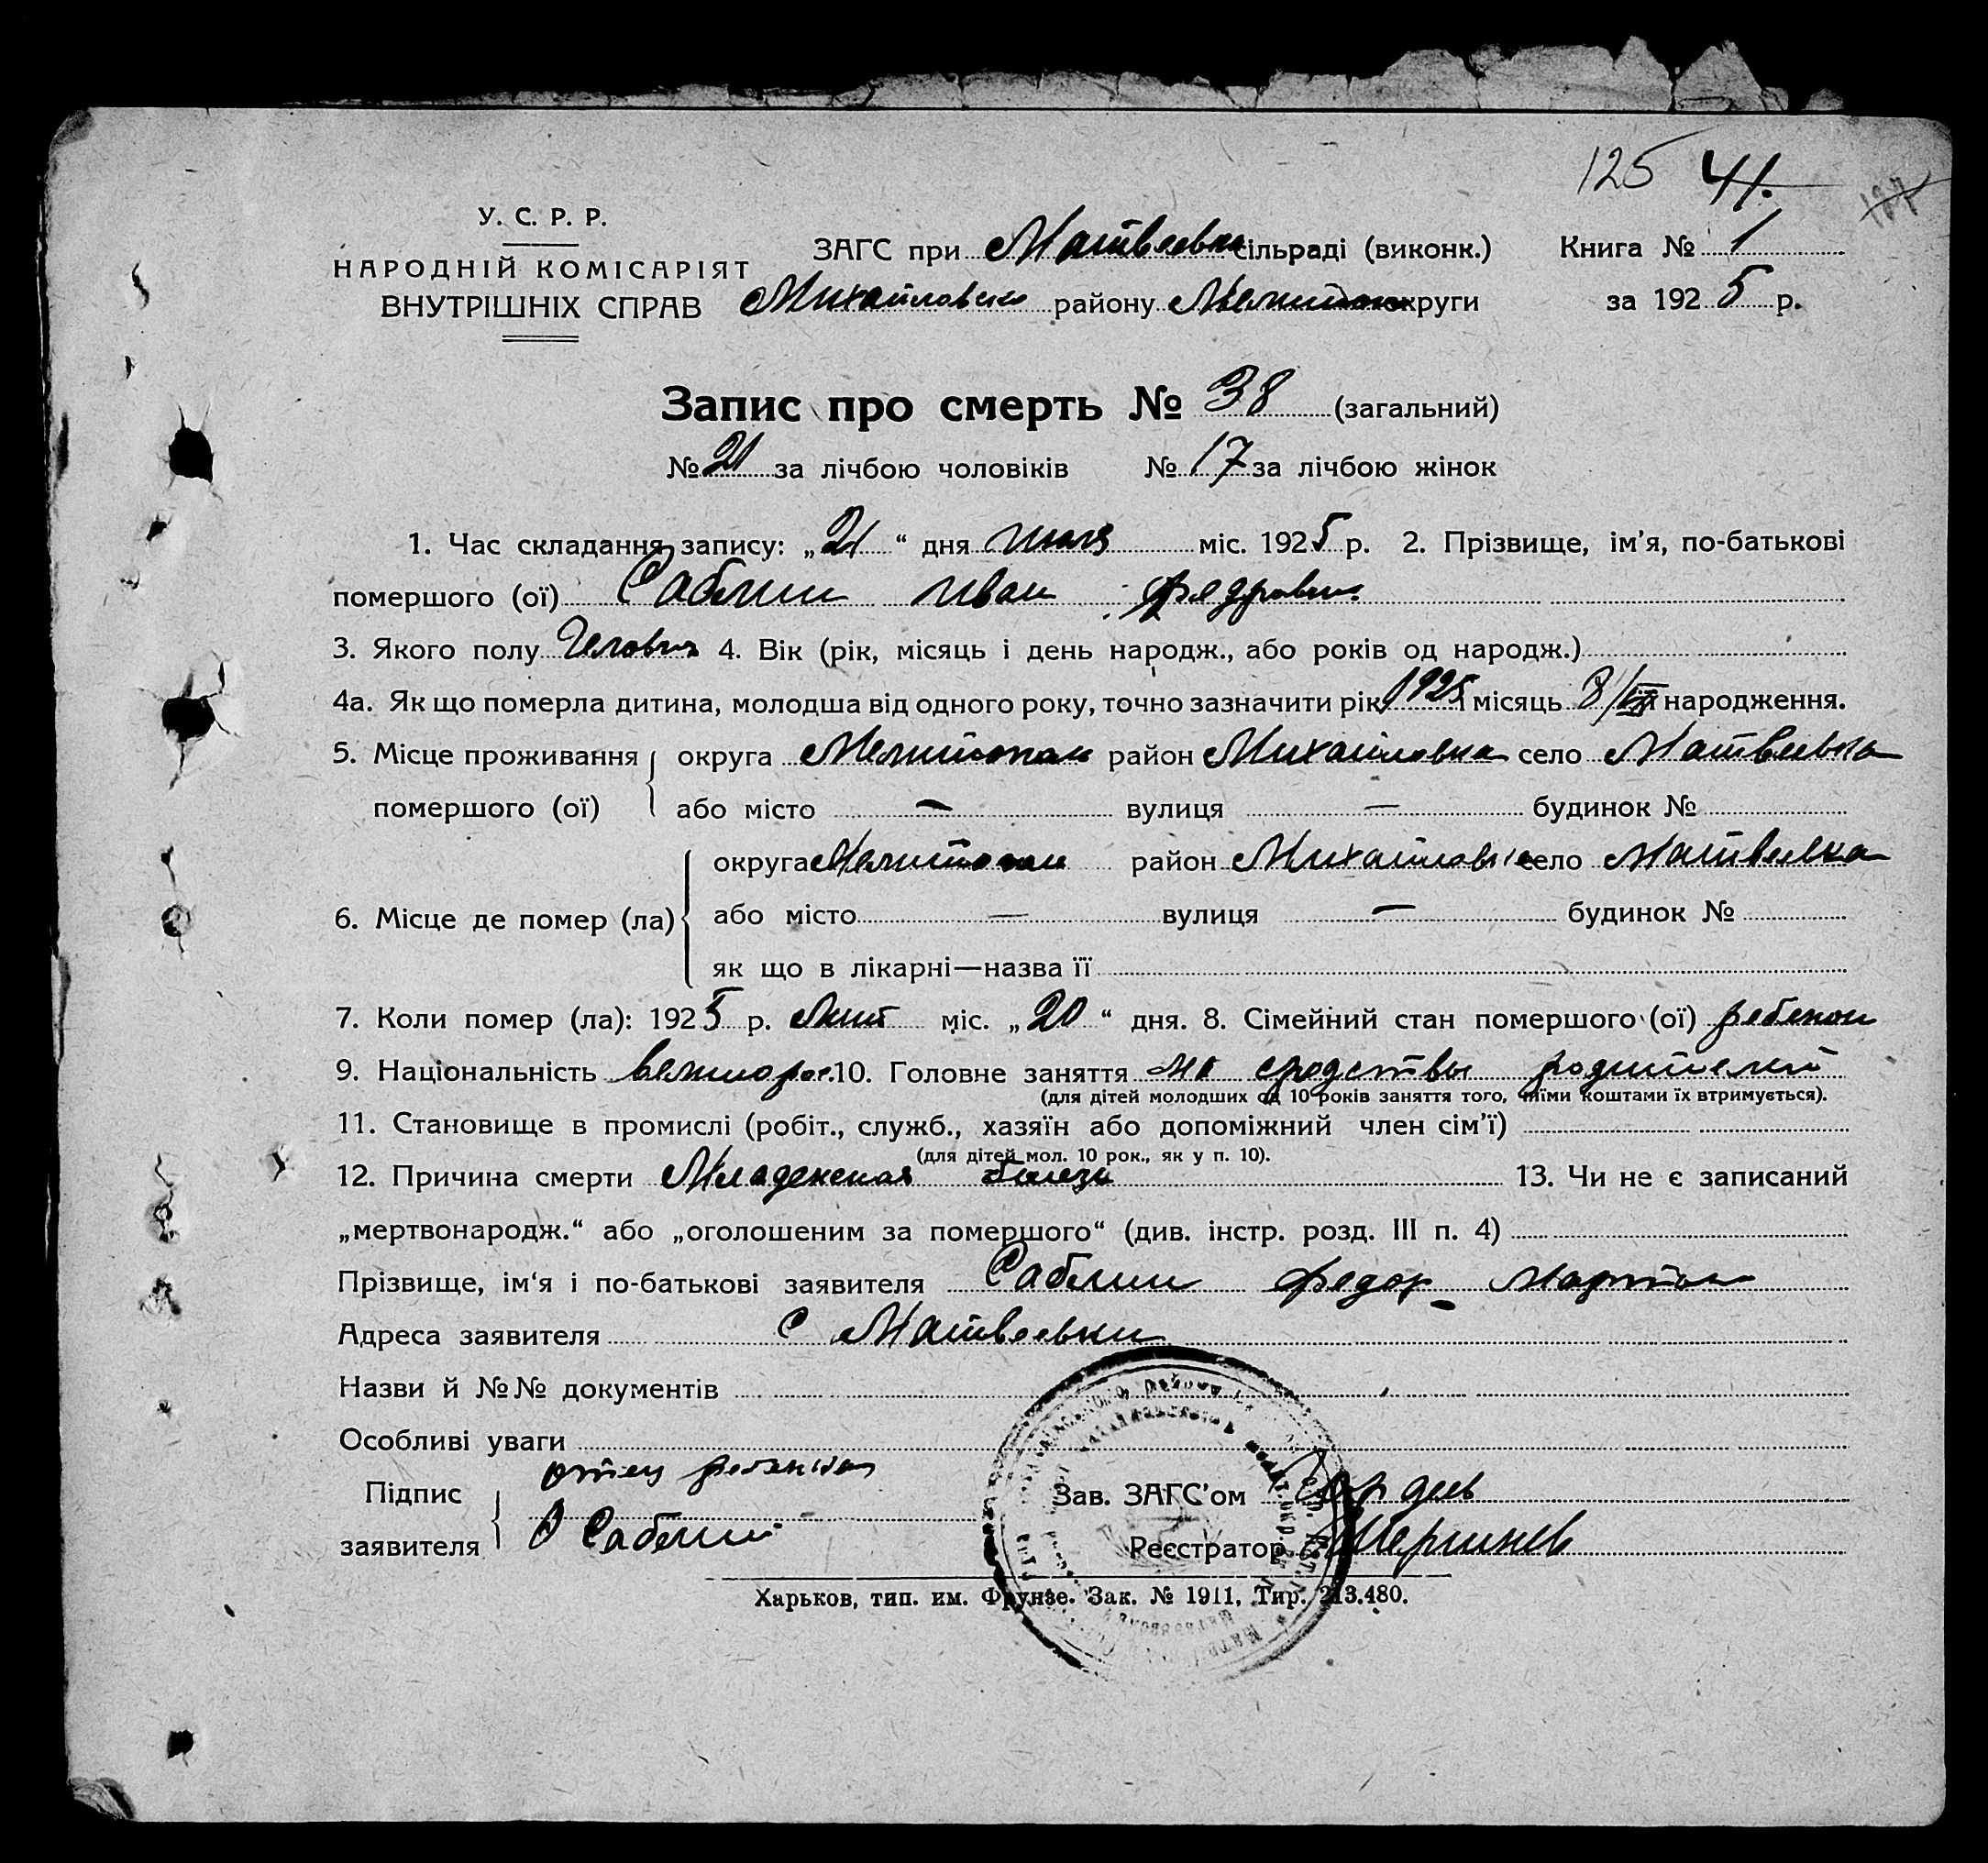 125 41.
У. С. Р. Р.
НАРОДНІЙ КОМІСАРІЯТ
ВНУТРІШНІХ СПРАВ
ЗАГС при Матвеевка сільраді (виконк.) Книга № 1
Михайловско району округи за 192 5 р.
Запис про смерть № 38 (загальний)
№ 21 за лічбою чоловіків № 17 за лічбою жінок
1. Час складання запису: „ 21 “ дня июля міс. 192 5 р. 2. Прізвище, ім'я, по-батькові
помершого (ої) Саблин Иван
3. Якого полу 4. Вік (рік, місяць і день народж., або років од народж.)
4а. Як що померла дитина, молодша від одного року, точно зазначити рік 1925 місяць народження.
5. Місце проживання округа Мелитопол район Михайловка село Матвеевка
помершого (ої) або місто — вулиця — будинок №
округа Мелитопол район Михайловка село Матвеевка
6. Місце де помер (ла) або місто — вулиця — будинок №
як що в лікарні—назва її
7. Коли помер (ла): 192 5 р. міс. „ 20 “ дня. 8. Сімейний стан помершого (ої) ребенок
9. Національність великорос. 10. Головне заняття на средствы родителей
(для дітей молодших од 10 років заняття того, чиїми коштами їх втримується).
11. Становище в промислі (робіт., служб., хазяїн або допоміжний член сім'ї)
(для дітей мол. 10 рок., як у п. 10).
12. Причина смерти Младенская 13. Чи не є записаний
„мертвонародж.“ або „оголошеним за помершого“ (див. інстр. розд. III п. 4)
Прізвище, ім'я і по-батькові заявителя Саблин Федор
Адреса заявителя С Матвеевки
Назви й №№ документів
Особливі уваги
отец ребенка
Підпис заявителя Саблин
Зав. ЗАГС'ом Гордеев
Реєстратор
Харьков, тип. им. Фрунзе. Зак. № 1911, Тир. 213.480.